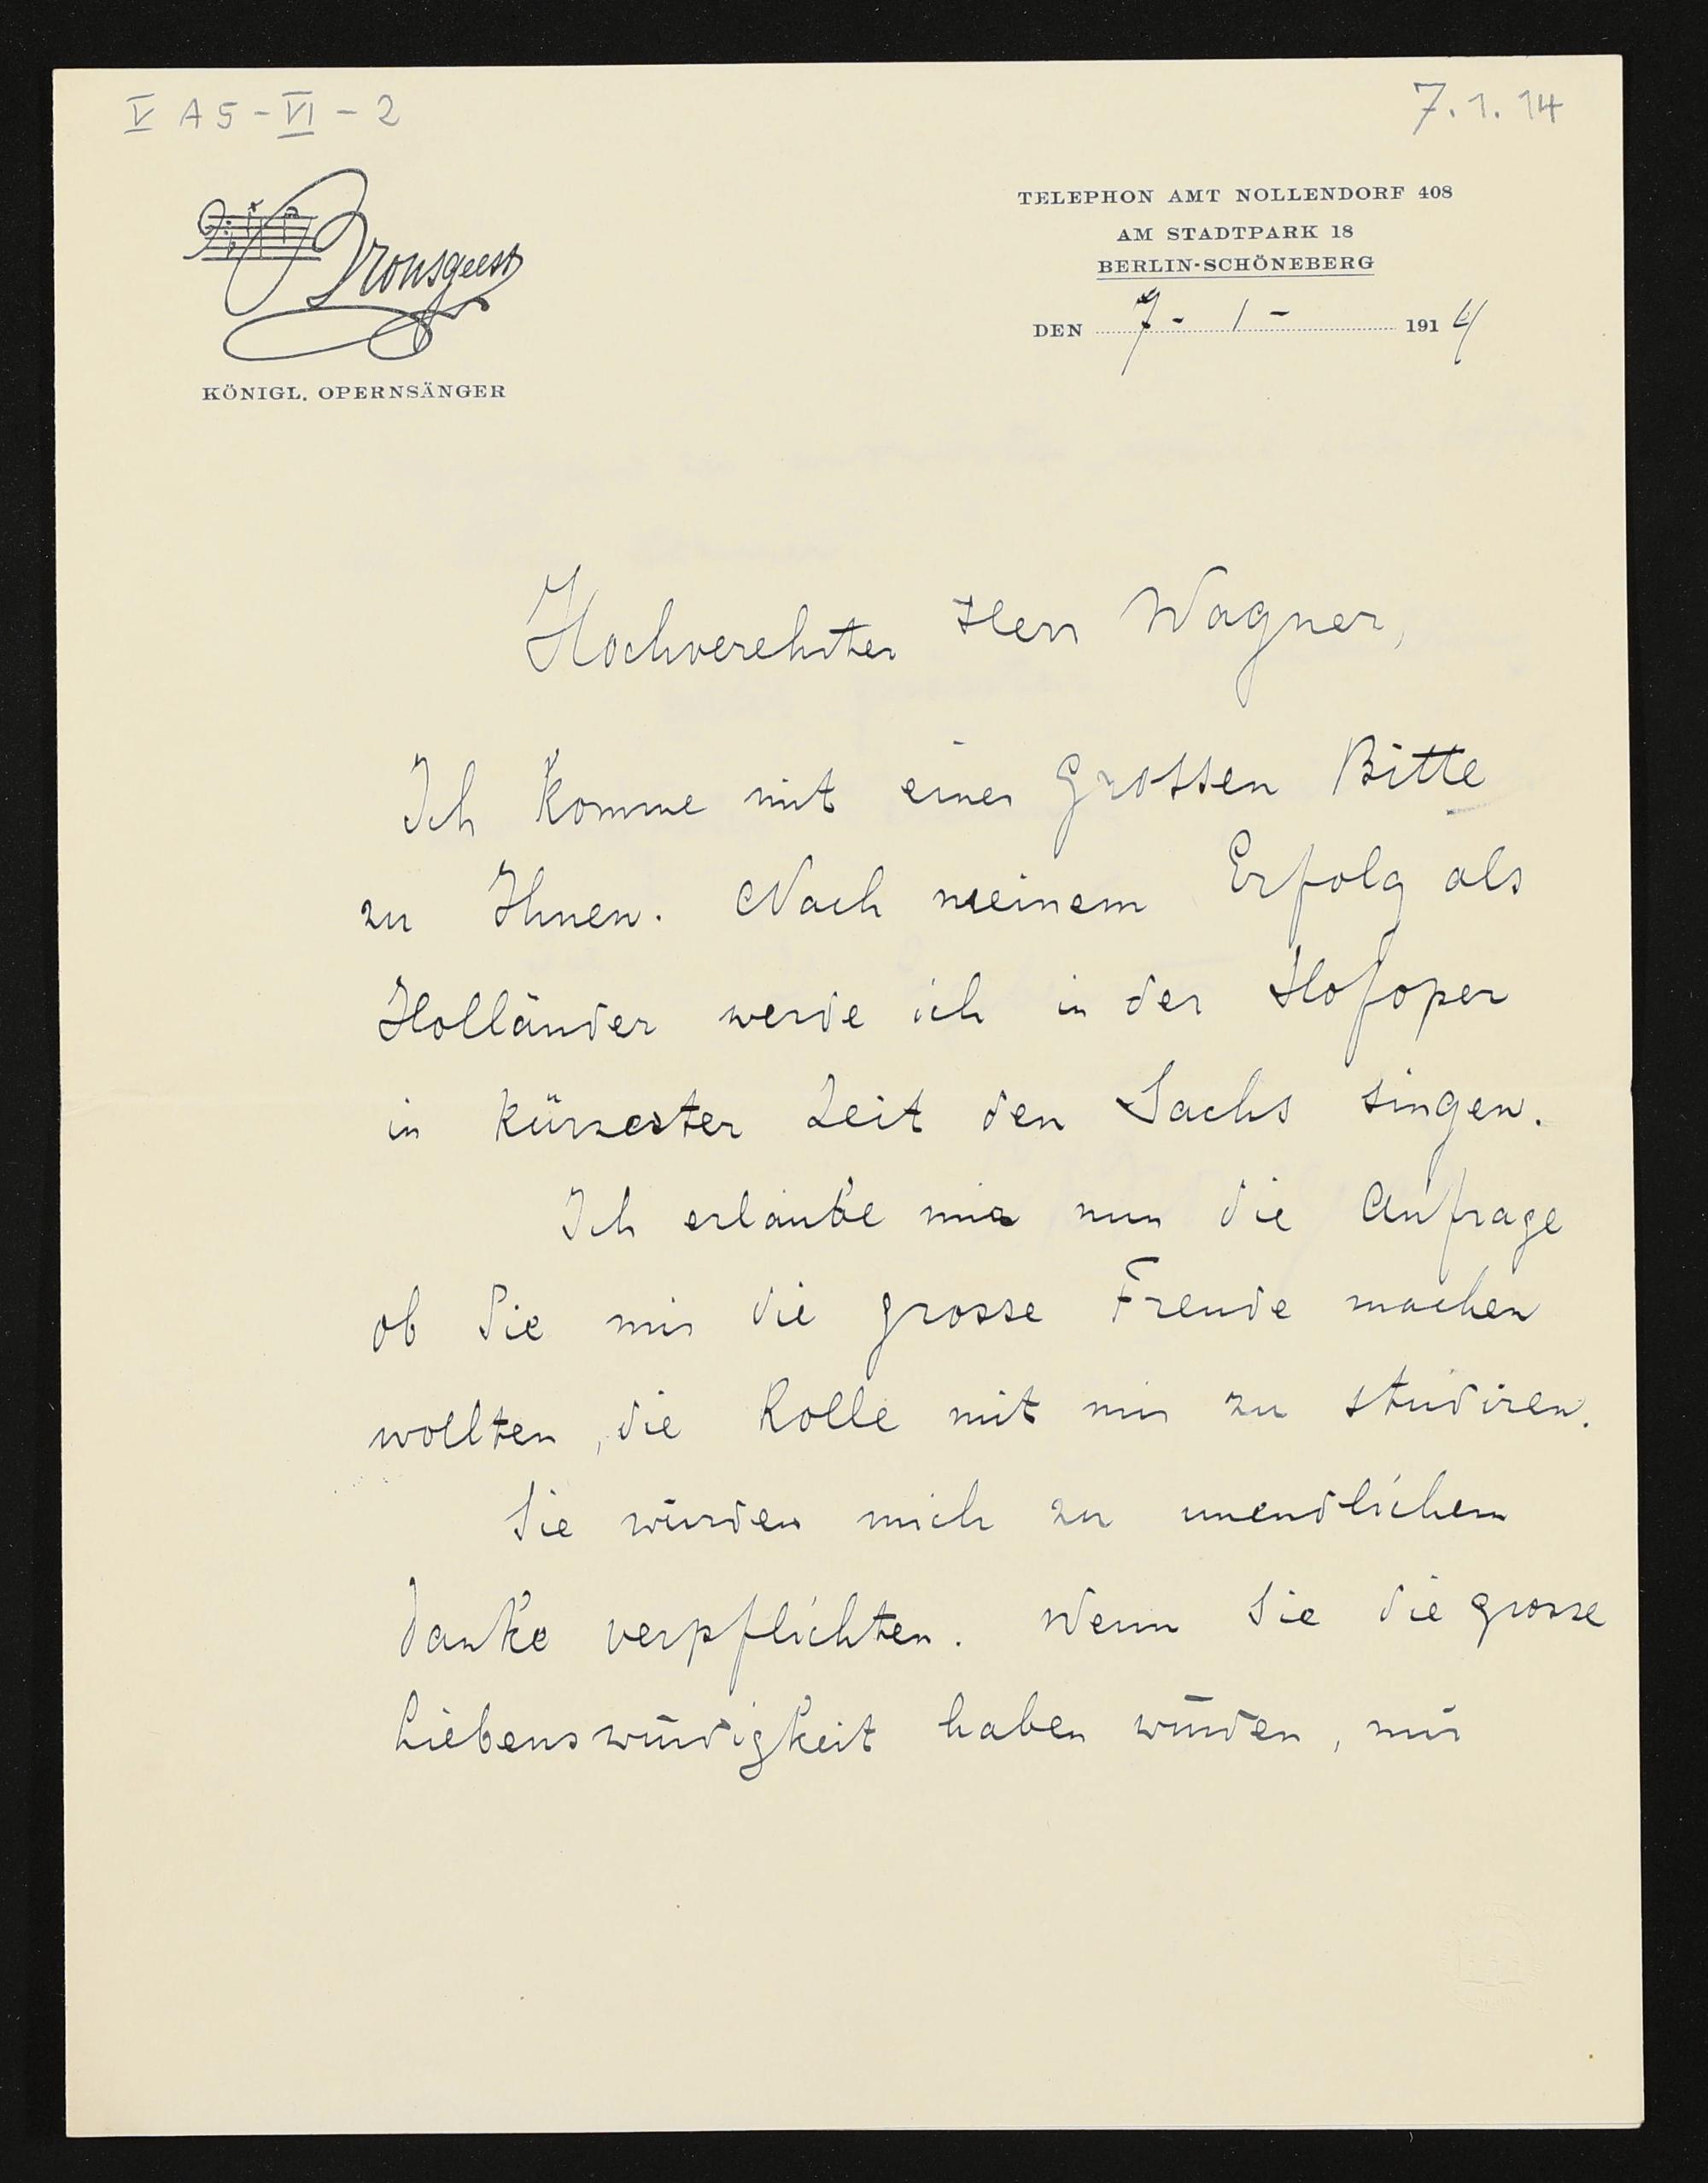 V A5-VI-2
7.1.14
Bronsgeest
KÖNIGL. OPERNSÄNGER
TELEPHON AMT NOLLENDORF 408
AM STADTPARK 18
BERLIN-SCHÖNEBERG
DEN 7 - 1 - 1914
Hochverehrter Herr Wagner,
Ich komme mit einer grossen Bitte
zu Ihnen. Nach meinem Erfolg als
Holländer werde ich in der Hofoper
in kürzester Zeit den Sachs singen.
Ich erlaube mir nun die Anfrage
ob Sie mir die grosse Freude machen
wollten, die Rolle mit mir zu studiren.
Sie würden mich zu unendlichem
Danke verpflichten. Wenn Sie die grosse
Liebenswürdigkeit haben würden, mir